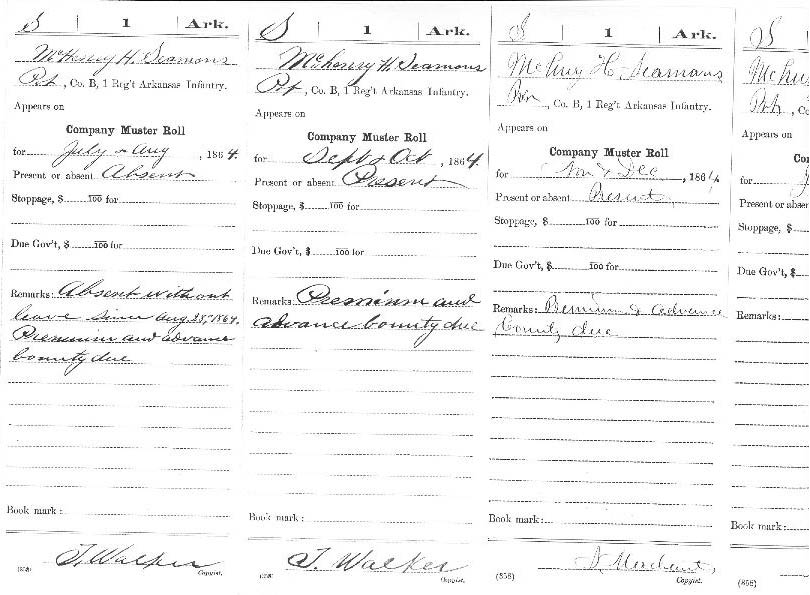 S | 1 | Ark.
McHenry H. Seamons
Pvt, Co. B, 1 Reg't Arkansas Infantry.
Appears on
Company Muster Roll
for July & Aug, 1864.
Present or absent Absent
Stoppage, $ 100 for
Due Gov't, $ 100 for
Remarks: Absent without
leave since Aug 28, 1864.
Premium and advance
bounty due
Book mark:
T. Walker
(858) Copyist.
S | 1 | Ark.
McHenry H. Seamons
Pvt, Co. B, 1 Reg't Arkansas Infantry.
Appears on
Company Muster Roll
for Sept & Oct, 1864.
Present or absent Present
Stoppage, $ 100 for
Due Gov't, $ 100 for
Remarks: Premium and
advance bounty due
Book mark:
T. Walker
(858) Copyist.
S | 1 | Ark.
McHenry H Seamans
, Co. B, 1 Reg't Arkansas Infantry.
Appears on
Company Muster Roll
for Nov & Dec, 1864
Present or absent Present
Stoppage, $ 100 for
Due Gov't, $ 100 for
Remarks: Premium & advance
bounty due
Book mark:
Merchant
(858) Copyist.
S
McHen
Pvt, Co
Appears on
Co
for J
Present or absen
Stoppage, $
Due Gov't, $
Remarks:
Book mark:
(858)